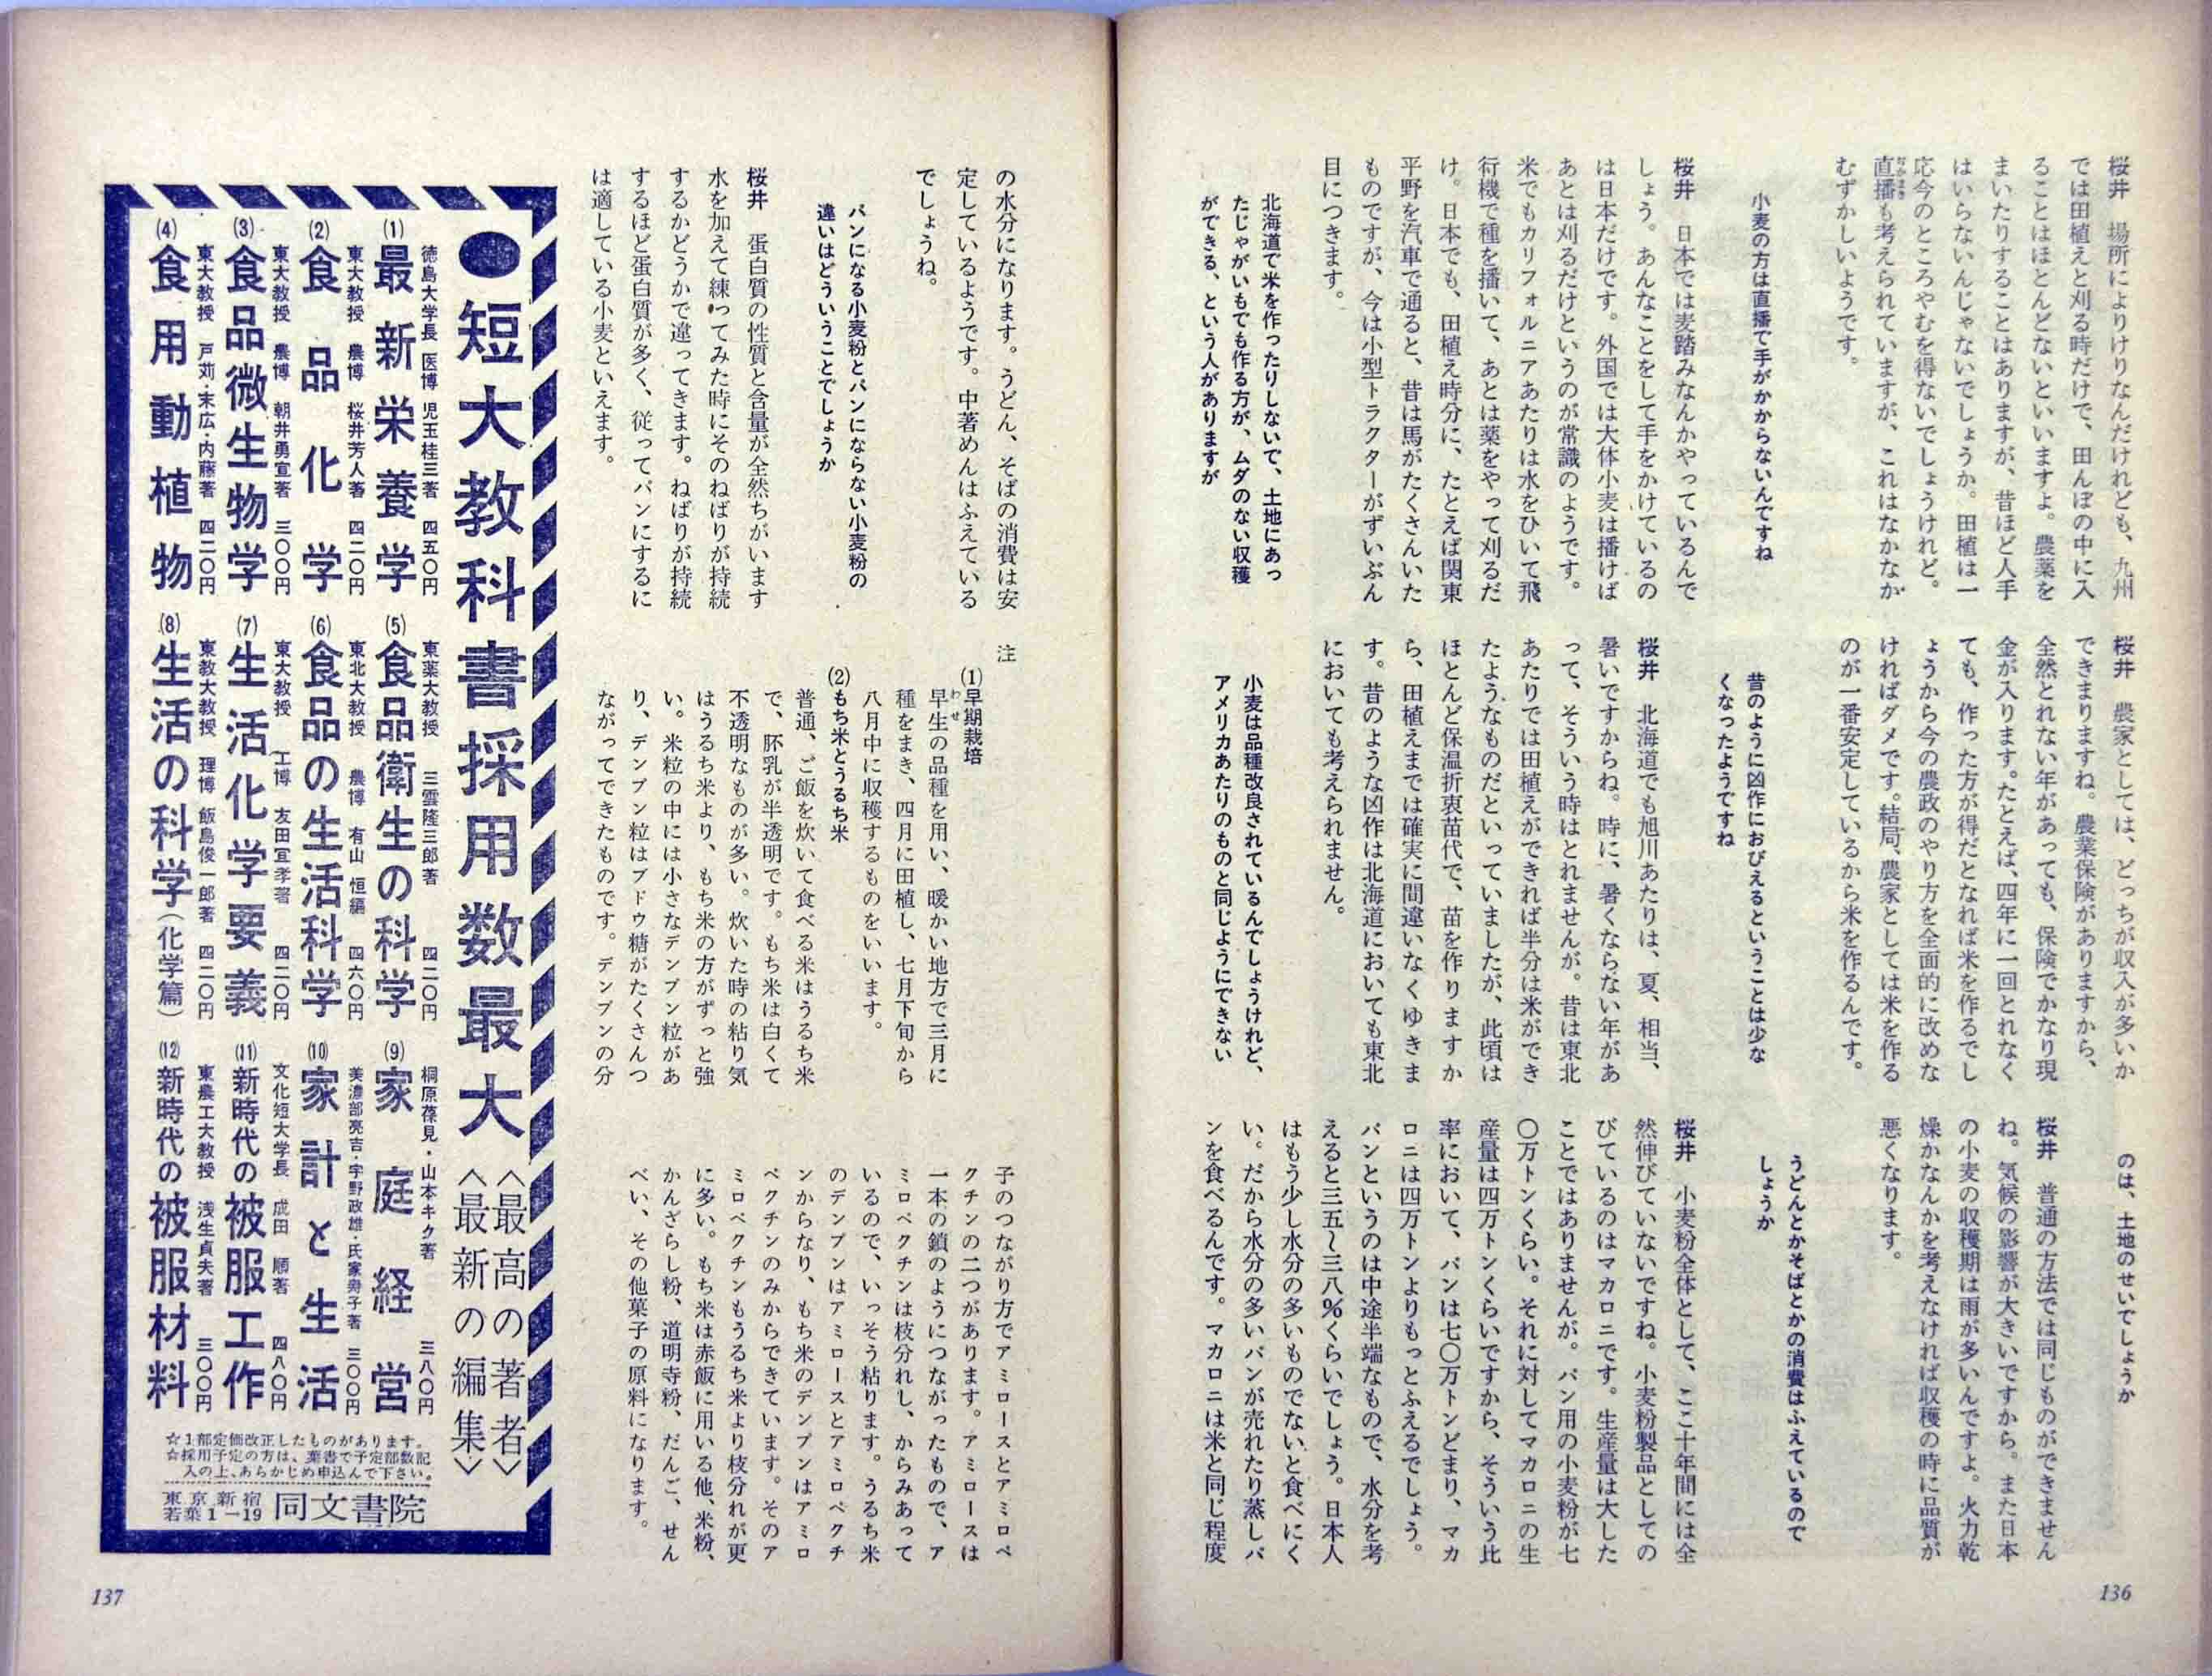 桜井　場所によりけりなんだけれども、九州
では田植えと刈る時だけで、田んぼの中に入
ることはほとんどないといいますよ。農薬を
まいたりすることはありますが、昔ほど人手
はいらないんじゃないでしょうか。田植は一
応今のところやむを得ないでしょうけれど。
直播も考えられていますが、これはなかなか
むずかしいようです。
小麦の方は直播で手がかからないんですね
桜井　日本では麦踏みなんかやっているんで
しょう。あんなことをして手をかけているの
は日本だけです。外国では大体小麦は播けば
あとは刈るだけというのが常識のようです。
米でもカリフォルニアあたりは水をひいて飛
行機で種を播いて、あとは薬をやって刈るだ
け。日本でも、田植え時分に、たとえば関東
平野を汽車で通ると、昔は馬がたくさんいた
ものですが、今は小型トラクターがずいぶん
目につきます。
北海道で米を作ったりしないで、土地にあっ
たじゃがいもでも作る方が、ムダのない収穫
ができる、という人がありますが
桜井　農家としては、どっちが収入が多いか
できまりますね。農業保険がありますから、
全然とれない年があっても、保険でかなり現
金が入ります。たとえば、四年に一回とれなく
ても、作った方が得だとなれば米を作るでし
ょうから今の農政のやり方を全面的に改めな
ければダメです。結局、農家としては米を作る
のが一番安定しているから米を作るんです。
昔のように凶作におびえるということは少な
くなったようですね
桜井　北海道でも旭川あたりは、夏、相当、
暑いですからね。時に、暑くならない年があ
って、そういう時はとれませんが。昔は東北
あたりでは田植えができれば半分は米ができ
たようなものだといっていましたが、此頃は
ほとんど保温折衷苗代で、苗を作りますか
ら、田植えまでは確実に間違いなくゆきま
す。昔のような凶作は北海道においても東北
においても考えられません。
小麦は品種改良されているんでしょうけれど、
アメリカあたりのものと同じようにできない
のは、土地のせいでしょうか
桜井　普通の方法では同じものができません
ね。気候の影響が大きいですから。また日本
の小麦の収穫期は雨が多いんですよ。火力乾
燥かなんかを考えなければ収穫の時に品質が
悪くなります。
うどんとかそばとかの消費はふえているので
しょうか
桜井　小麦粉全体として、ここ十年間には全
然伸びていないですね。小麦粉製品としての
びているのはマカロニです。生産量は大した
ことではありませんが。パン用の小麦粉が七
〇万トンくらい。それに対してマカロニの生
産量は四万トンくらいですから、そういう比
率において、パンは七〇万トンどまり、マカ
ロニは四万トンよりもっとふえるでしょう。
パンというのは中途半端なもので、水分を考
えると三五〜三八％くらいでしょう。日本人
はもう少し水分の多いものでないと食べにく
い。だから水分の多いパンが売れたり蒸しパ
ンを食べるんです。マカロニは米と同じ程度
136
の水分になります。うどん、そばの消費は安
定しているようです。中著めんはふえている
でしょうね。
パンになる小麦粉とパンにならない小麦粉の
違いはどういうことでしょうか
桜井　蛋白質の性質と含量が全然ちがいます
水を加えて練ってみた時にそのねばりが持続
するかどうかで違ってきます。ねばりが持続
するほど蛋白質が多く、従ってパンにするに
は適している小麦といえます。
注
(1)早期栽培
早生の品種を用い、暖かい地方で三月に
わせ
種をまき、四月に田植し、七月下旬から
八月中に収穫するものをいいます。
(2)もち米とうるち米
普通、ご飯を炊いて食べる米はうるち米
で、胚乳が半透明です。もち米は白くて
不透明なものが多い。炊いた時の粘り気
はうるち米より、もち米の方がずっと強
い。米粒の中には小さなデンプン粒があ
り、デンプン粒はブドウ糖がたくさんつ
ながってできたものです。デンプンの分
子のつながり方でアミロースとアミロペ
クチンの二つがあります。アミロースは
一本の鎖のようにつながったもので、ア
ミロペクチンは枝分れし、からみあって
いるので、いっそう粘ります。うるち米
のデンプンはアミロースとアミロペクチ
ンからなり、もち米のデンプンはアミロ
ペクチンのみからできています。そのア
ミロペクチンもうるち米より枝分れが更
に多い。もち米は赤飯に用いる他、米粉、
かんざらし粉、道明寺粉、だんご、せん
べい、その他菓子の原料になります。
●短大教科書採用数最大
〈最高の著者〉
〈最新の編集〉
徳島大学長　医博　児玉桂三著　四五〇円
(1)最新栄養学
東大教授　農博　桜井芳人著　四二〇円
(2)食品化学
東大教授　農博　朝井勇宣著　三〇〇円
(3)食品微生物学
東大教授　戸苅・末広・内藤著　四二〇円
(4)食用動植物
東薬大教授　三雲隆三郎著　四二〇円
(5)食品衛生の科学
東北大教授　農博　有山　恒編　四六〇円
(6)食品の生活科学
東大教授　工博　友田宜孝著　四二〇円
(7)生活化学要義
東教大教授　理博　飯島俊一郎著　四二〇円
(8)生活の科学（化学篇）
桐原葆見・山本キク著　三八〇円
(9)家庭経営
美濃部亮吉・宇野政雄・氏家寿子著　三〇〇円
(10)家計と生活
文化短大学長　成田　順著　四八〇円
(11)新時代の被服工作
東農工大教授　浅生貞夫著　三〇〇円
(12)新時代の被服材料
☆１部定価改正したものがあります。
☆採用予定の方は、葉書で予定部数記
入の上、あらかじめ申込んで下さい。
東京新宿
若葉1－19
同文書院
137